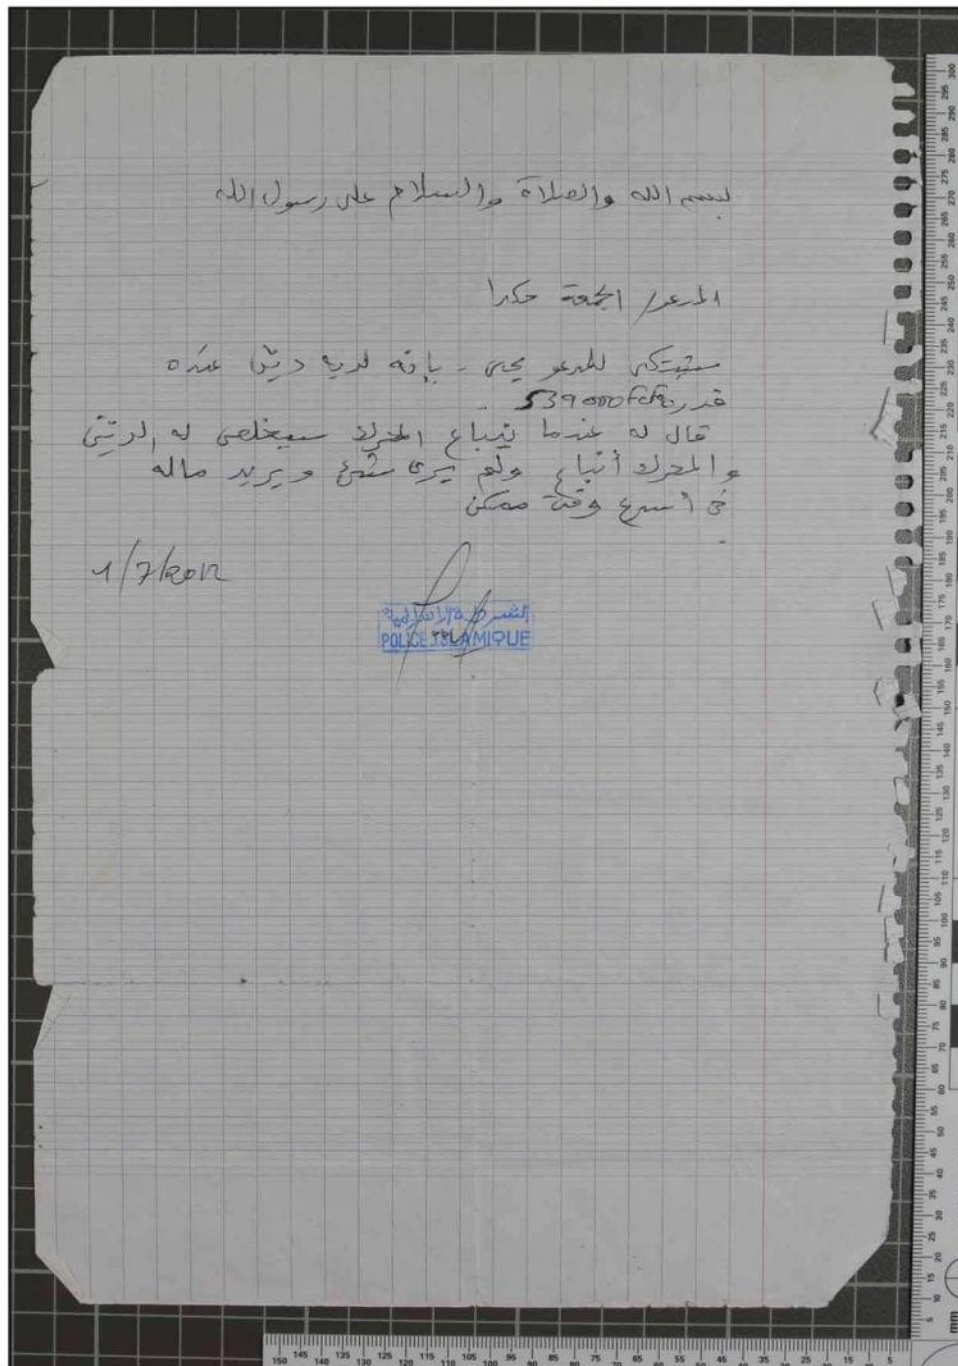 بسم الله والصلاة والسلام على رسول الله
المدعو/ الجمعة حكدا
يشتكى للمدعو يحيى - بإنه لديه ديتن عنده
قدره 539000 fcfa
قال له عندما يتباع المحرك سيخلص له الديتن
والمحرك أتباع ولم يرى شئ ويريد ماله
فى أسرع وقت ممكن
1/7/2012
الشرطة الإسلامية
POLICE ISLAMIQUE